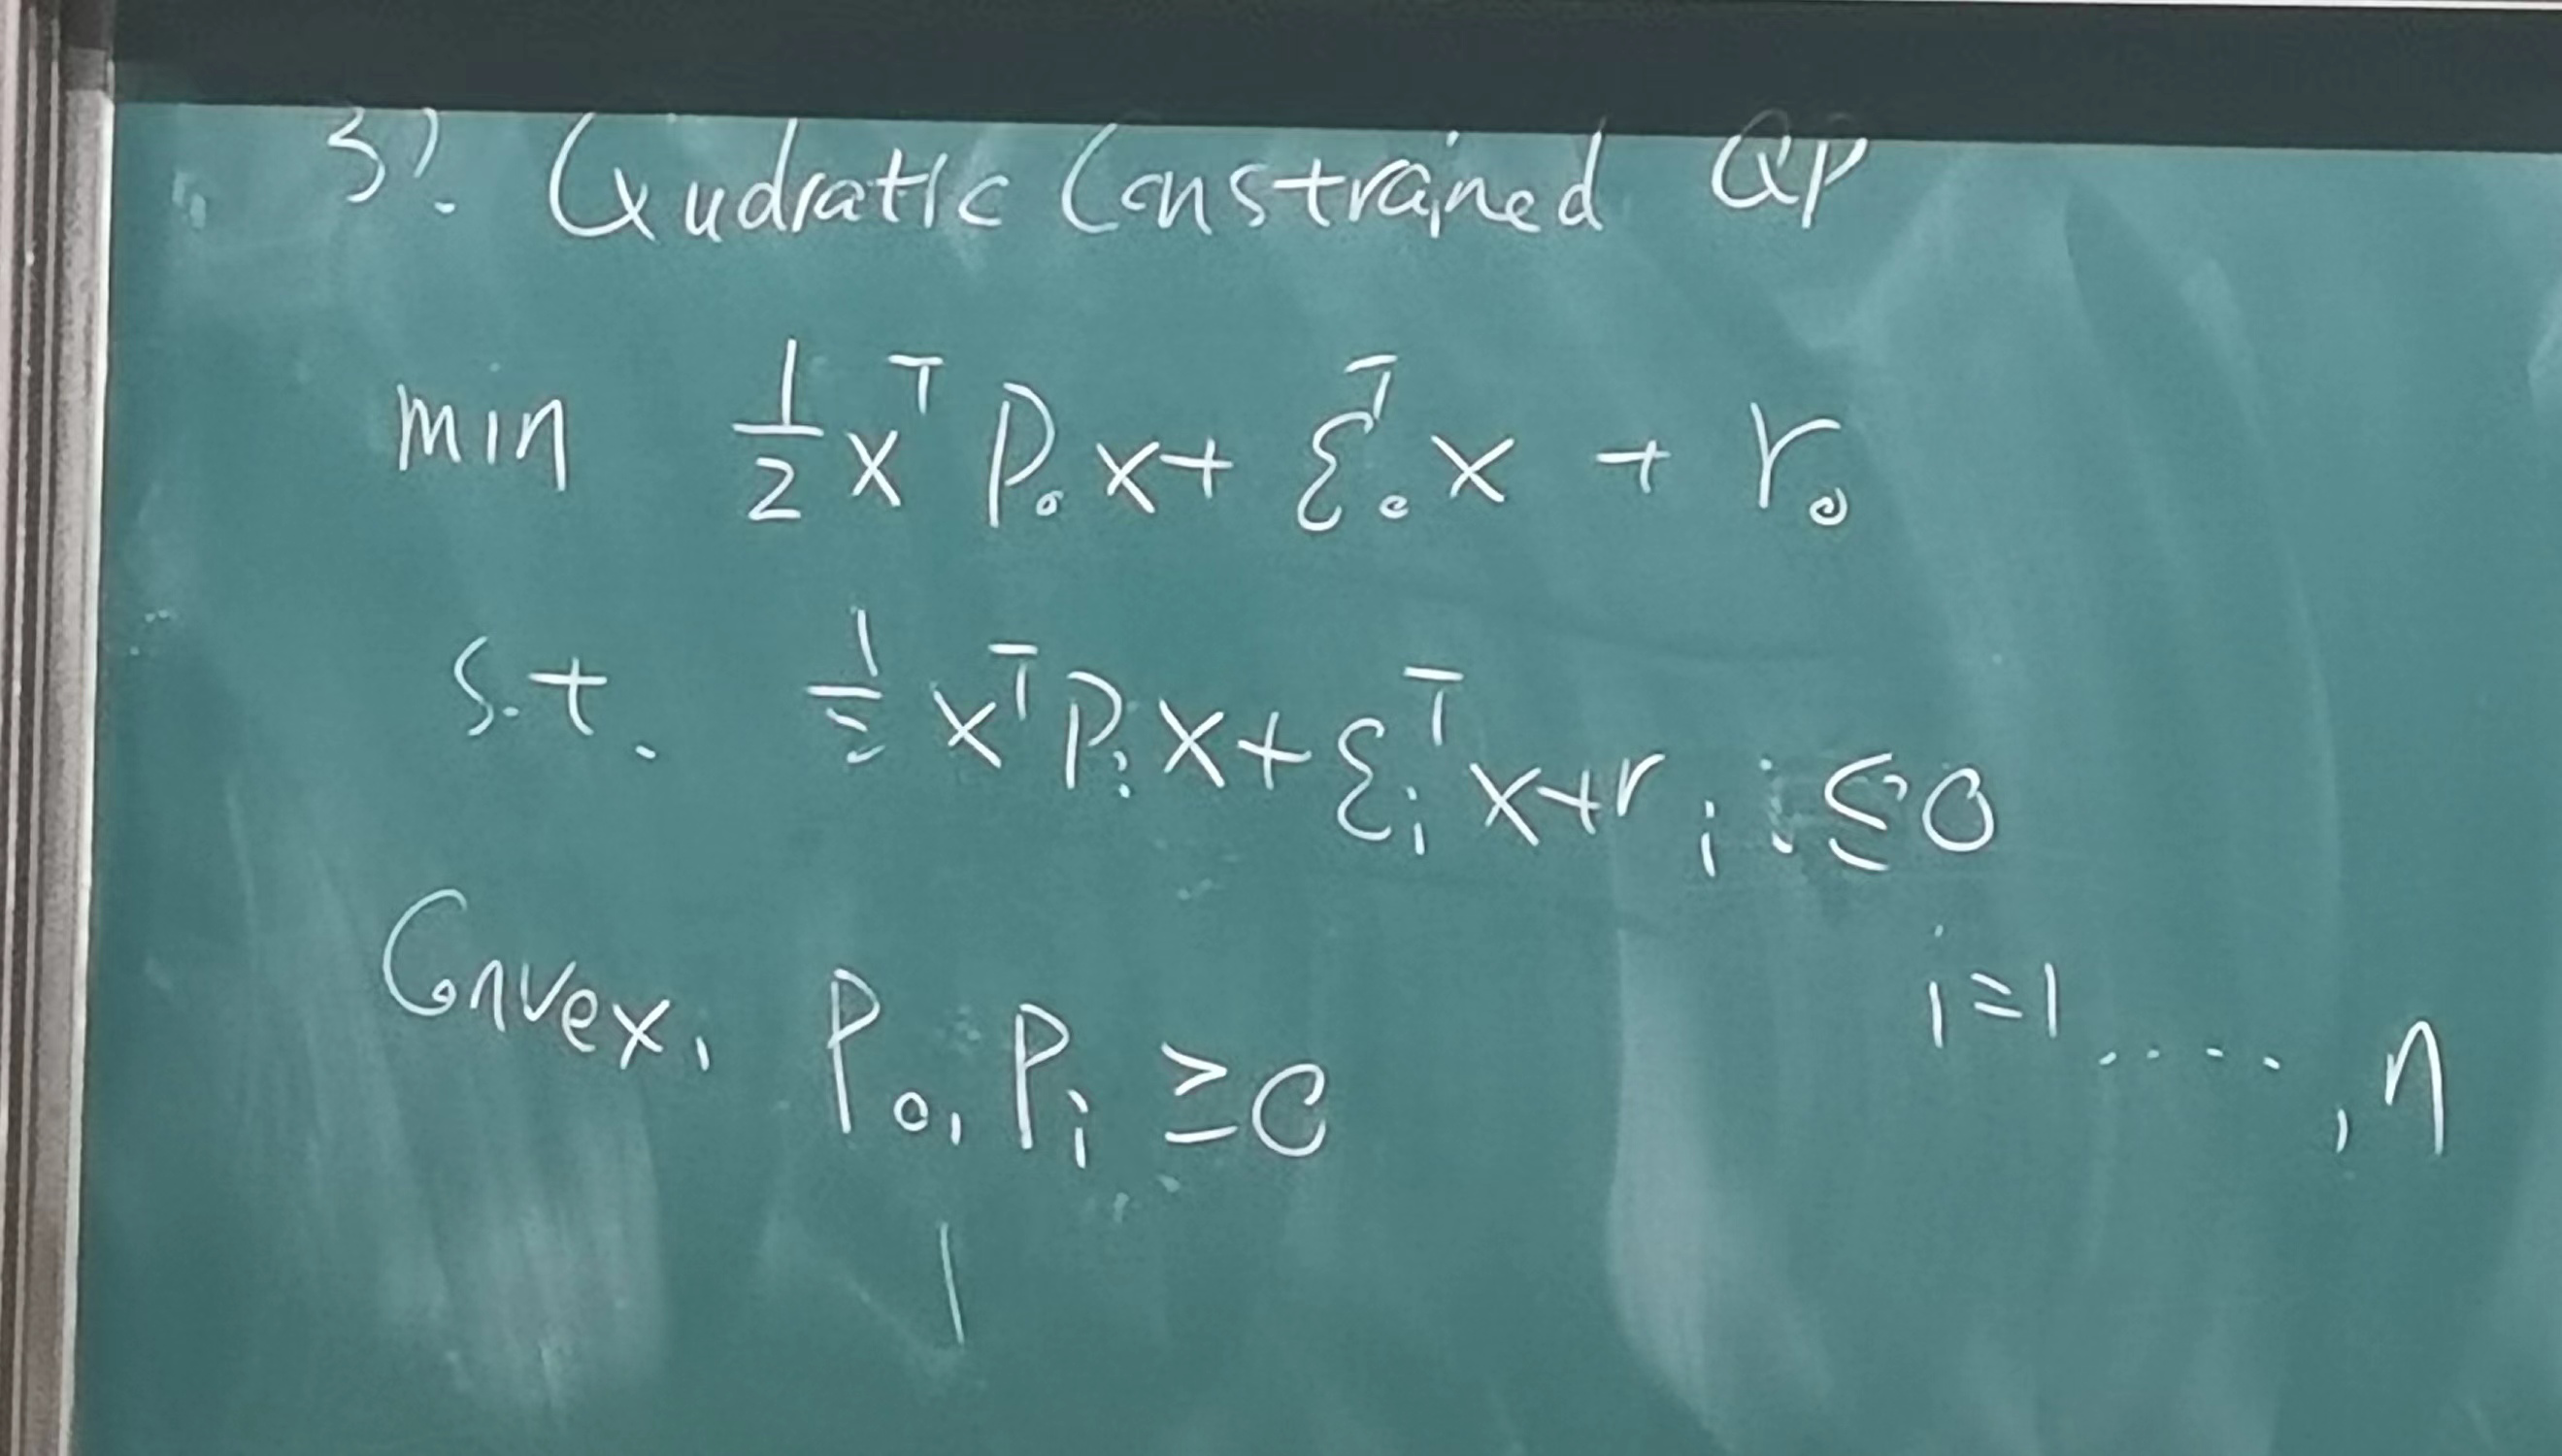 3). Qudratic Constrained QP
min 1/2 x^T P_0 x + ξ_0^T x + r_0
s.t. 1/2 x^T P_i x + ξ_i^T x + r_i ≤ 0
i = 1 ...., n
Convex, P_0, P_i ≥ 0